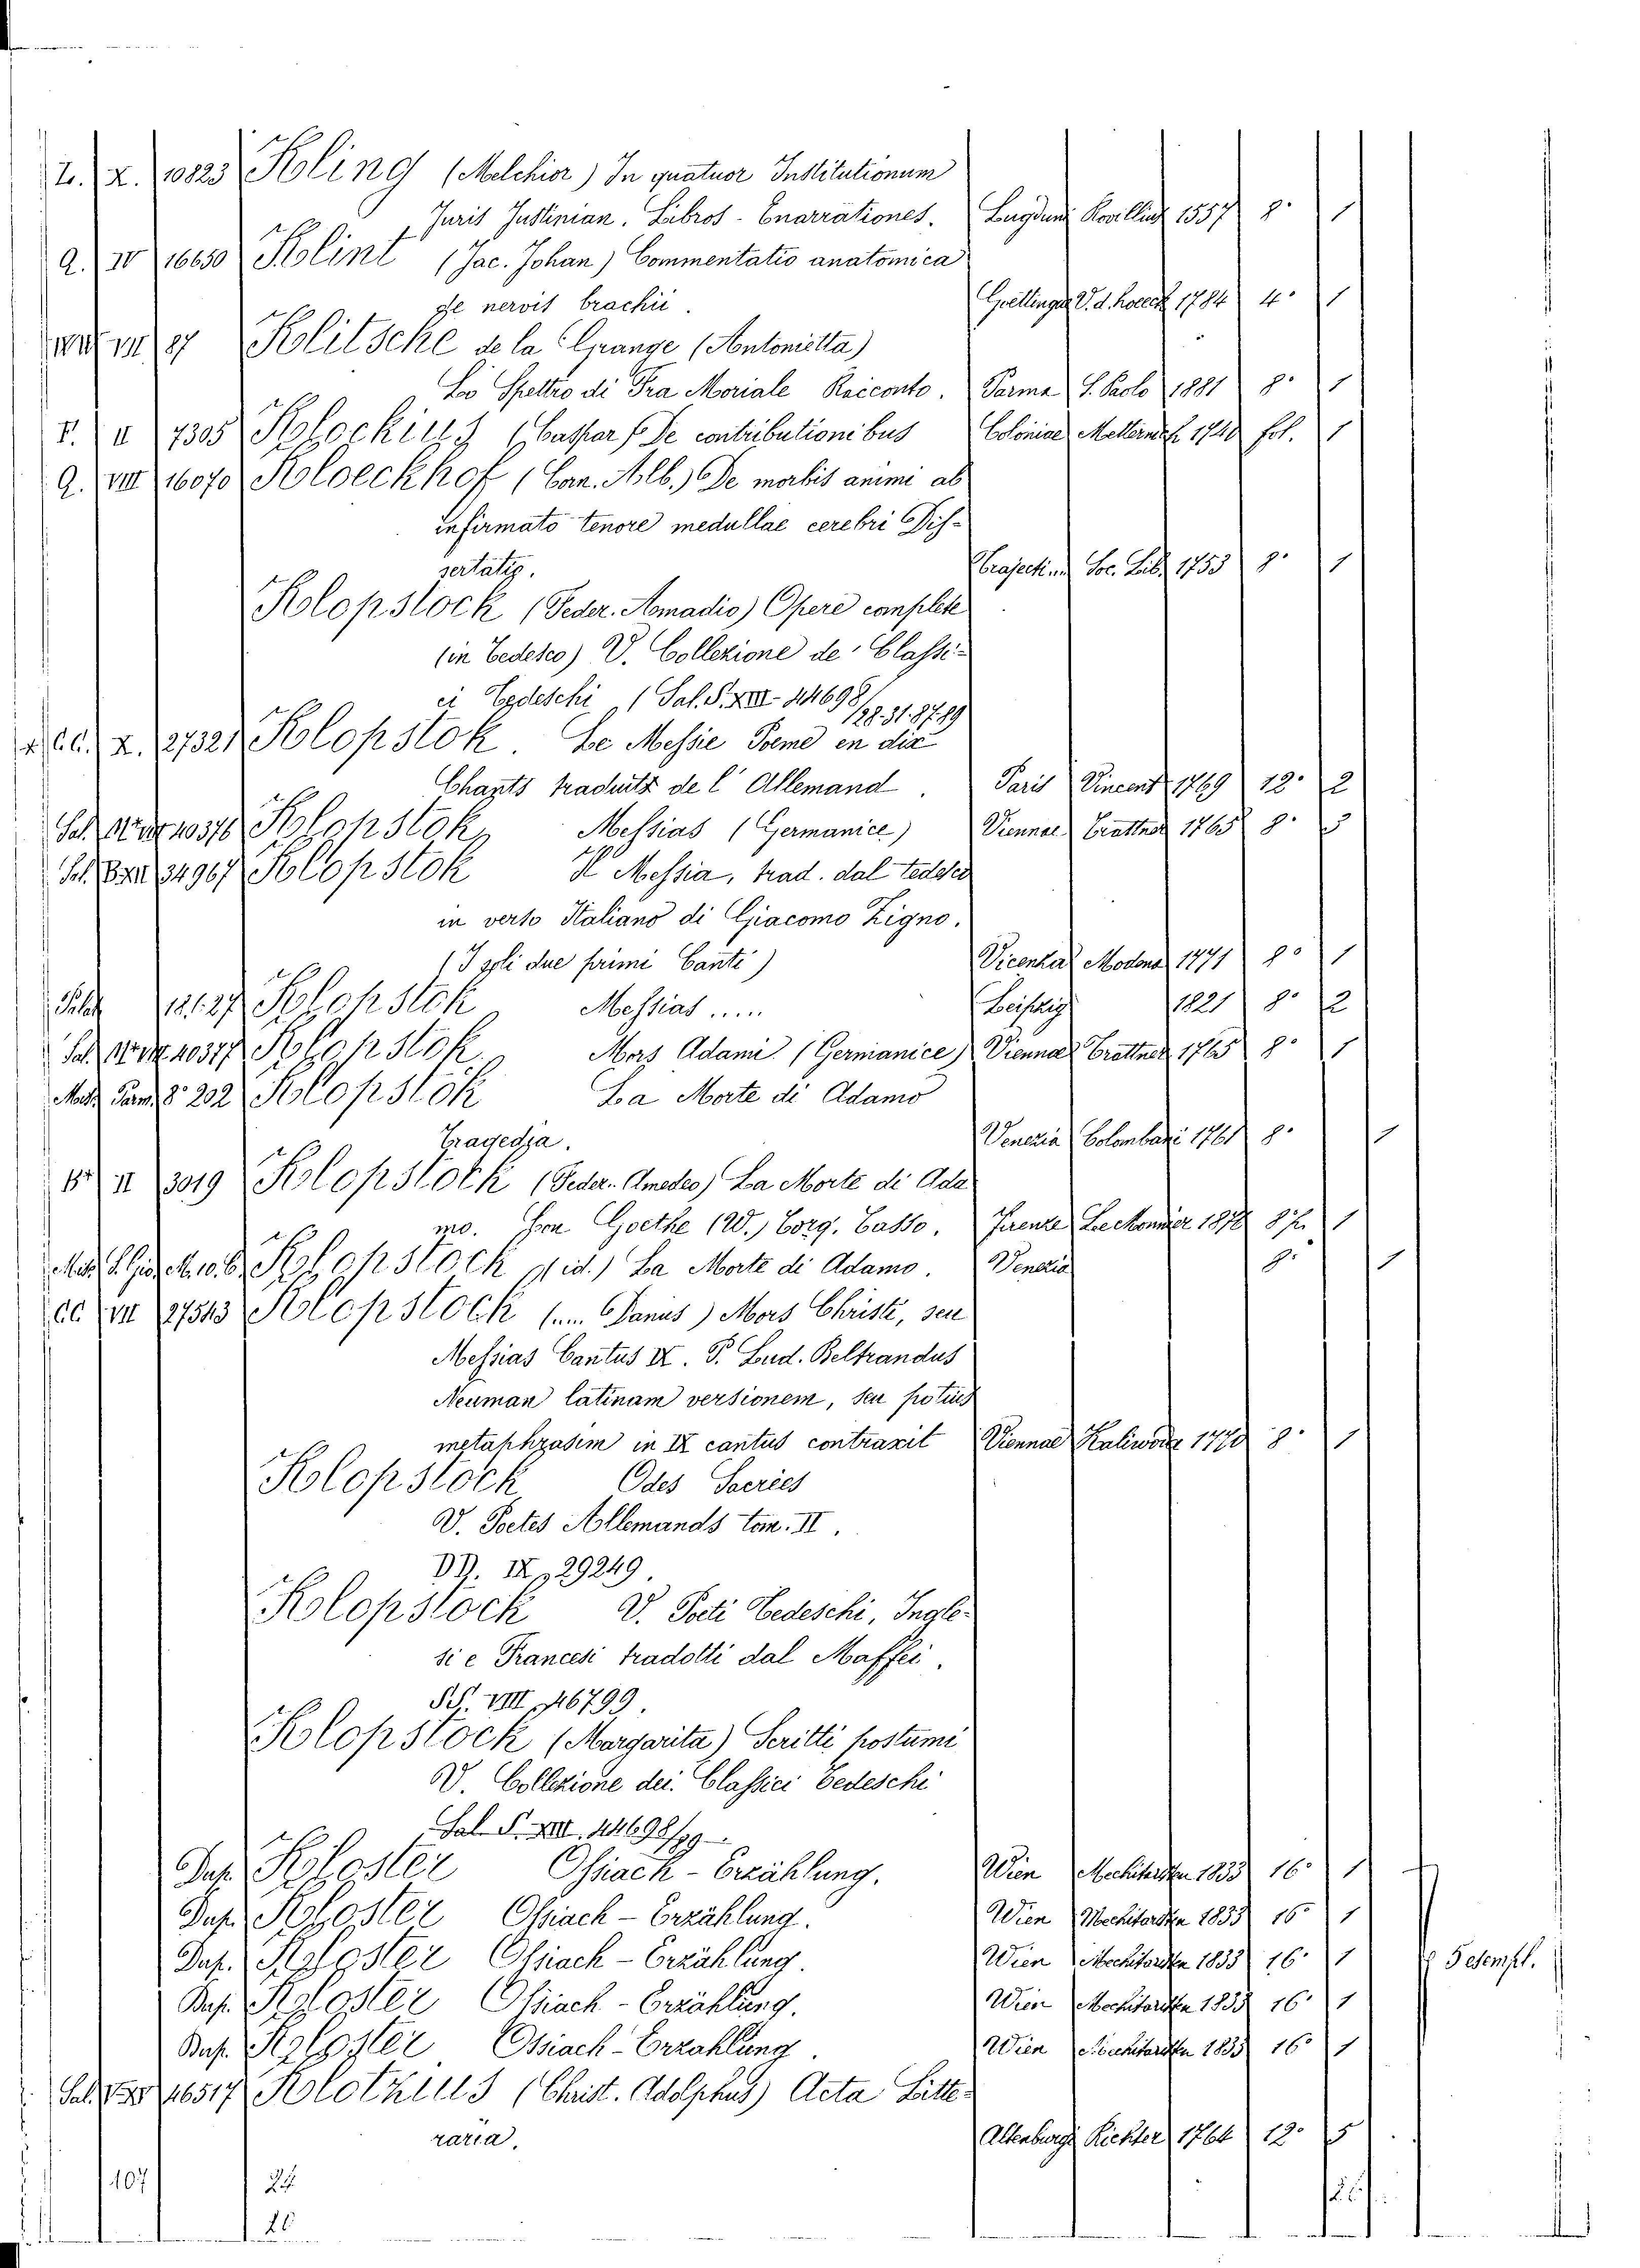 Z. X. 10823 Kling (Melchior) In quatuor Institutionum
Juris Justinian. Libros - Enarrationes. Lugduni Rovillius 1557 8. 1
Q. IV 16650 Klint (Jac. Johan) Commentatio anatomica
de nervis brachii. Goettingae V. d. hoeck 1784 4. 1
VII 87 Klitsche de la Grange (Antonietta)
Lo Spettro di Fra Moriale Racconto. Parma S. Paolo 1881 8. 1
F. II 7305 Klockius (Caspar) De contributionibus Coloniae Metternich 1740 fol. 1
Q. VIII 16070 Kloeckhof (Corn. Alb.) De morbis animi ab
infirmato tenore medullae cerebri Dis-
sertatio. Trajecti Soc. Lib. 1753 8. 1
Klopstock (Feder. Amadio) Opere complete
(in Tedesco) V. Collezione de' Classi-
ci Tedeschi (Sal. S. XIII - 44698/
128.31.8789
CC. X. 27321 Klopstok. Le Messie Poeme en dix
Chants traduits de l'Allemand. Paris Vincent 1769 12. 2
10376 Klopstok, Messias (Germanice) Viennae Trattner 1765 8. 3
34967 Klopstok Il Messia, trad. dal tedesco
in verso Italiano di Giacomo Zigno.
(I soli due primi Canti) Vicenza Modena 1771 8. 1
12127 Klopstok Messias ..... Leipzig 1821 8. 2
10377 Klopstok. Mors Adami. (Germanice) Viennae Trattner 1765 8. 1
8. 202 Klopstok La Morte di Adamo
Tragedia. Venezia Colombani 1761 8. 1
II 3019 Klopstock (Feder. Amedeo) La Morte di Ada
mo. Con Goethe (W.) Torq. Tasso. Firenze Le Monnier 1878 8. 1
Klopstock (id.) La Morte di Adamo. Venezia 8. 1
CC VII 27543 Klopstock (.... Danus) Mors Christi, seu
Messias Cantus IX. P. Lud. Beltrandus
Neuman latinam versionem, seu potius
metaphrasim in IX cantus contraxit Viennae Kaliwoda 1770 8. 1
Klopstock Odes Sacrées
V. Poetes Allemands tom. II.
DD. IX, 29249.
Klopstock V. Poeti Tedeschi, Ingle-
si e Francesi tradotti dal Maffei.
SS. VIII, 46799.
Klopstock (Margarita) Scritti postumi
V. Collezione dei. Classici Tedeschi
Sal. S. XIII. 44698/99
Dup. Kloster Ossiach - Erzählung. Wien Mechitaristen 1833 16. 1
Dup. Kloster Ossiach - Erzählung. Wien Mechitaristen 1833 16. 1
Dup. Kloster Ossiach - Erzählung. Wien Mechitaristen 1833 16. 1 5 esempl.
Dup. Kloster Ossiach - Erzählung. Wien Mechitaristen 1833 16. 1
Dup. Kloster Ossiach - Erzahlung. Wien Mechitaristen 1833 16. 1
Sal. 46517 Klotzius (Christ. Adolphus) Acta Litte-
raria. Altenburgi Richter 1764 12. 5
107 24
26